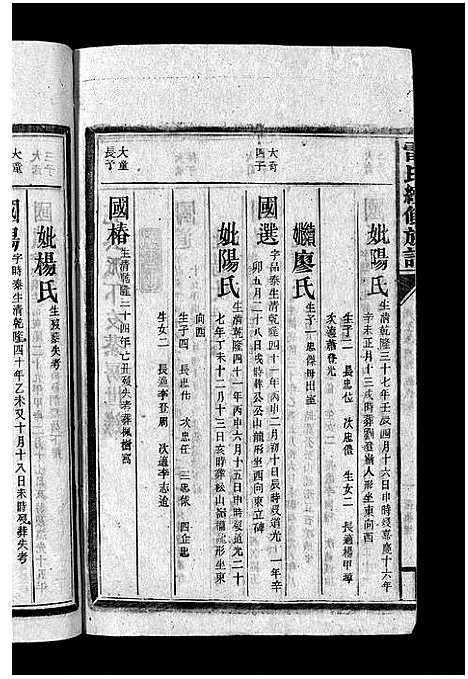 雷氏續修族譜
妣陽氏
生清乾隆三十七年壬辰四月十六日申時歿嘉慶十六年
辛未正月十三戌時葬劉道嶺人形坐東向西
生子二 長忠位 次忠儀 生女二 長適楊甲璋
次適蕭啓光
繼妣廖氏
生子一 忠傑母出室
大奇
四子
國選
字品泰生清乾隆四十一年丙申二月初十日辰時歿道光一年辛
卯五月二十八日戌時葬公公山龍形坐西向東立碑
妣陽氏
生清乾隆四十一年丙申六月十五日申時歿道光二十
七年丁未十二月十三日亥時葬松山嶺獺形坐東
向西
生子四 長忠仕 次忠任 三忠俵 四企忠
生女二 長適李登朋 次適李志遠
大童
長子
國椿
生清乾隆二十四年亡丑歿失考葬楓樹窩
妣楊氏
生歿葬失考
大童
國易
字時泰生清乾隆四十年乙未又十月十八日未時歿葬失考